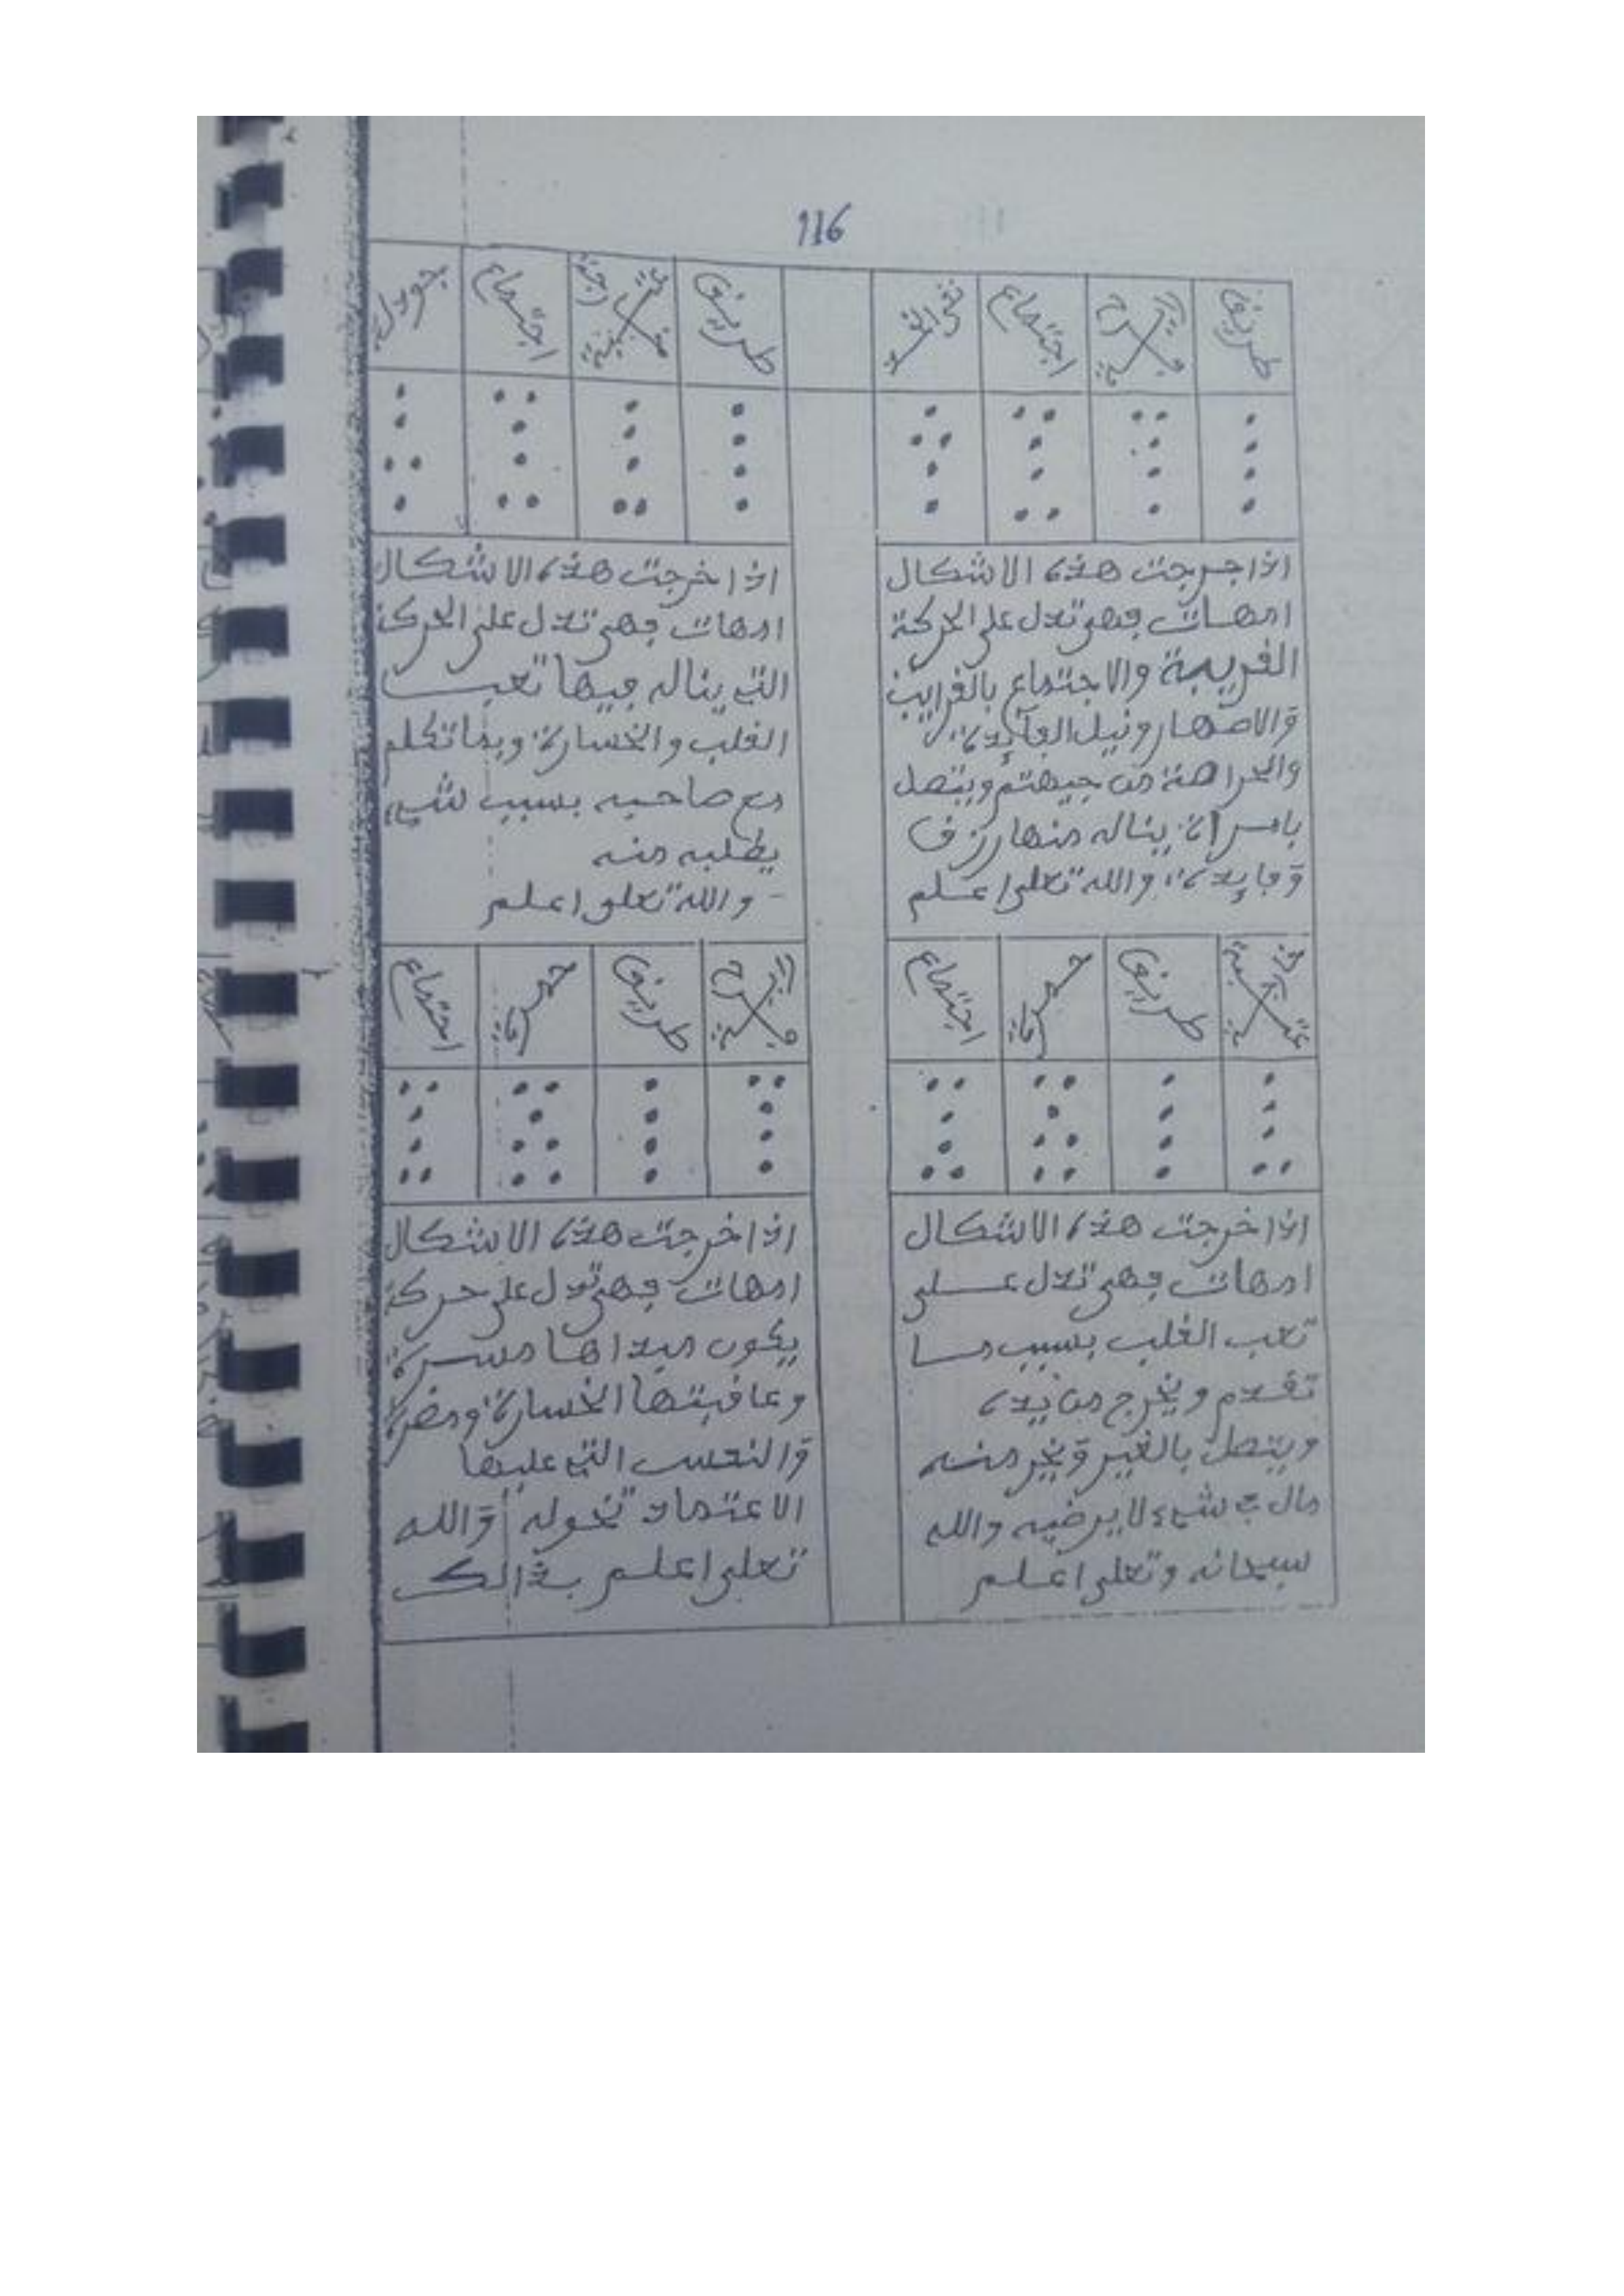 116
طريق
اجتماع
نقي الخد
اذا جرجت هذه الاشكال
امهات فهي تدل على الحركة
القريبة والاجتماع بالقرايب
والاصهار ونيل الفآيدة
من جيهتهم ويتصل
بامراة يناله منها رزق
وفايدة والله تعلى اعلم
طريق
اجتماع
جودل
اذا خرجت هذه الاشكال
امهات فهي تدل على الحركة
التي يناله فيها تعب
القلب والخسارة وبما تكلم
مع صاحبه بسبب شيء
يطلبه منه
والله تعلى اعلم
طريق
حمرة
اجتماع
اذا خرجت هذه الاشكال
امهات فهي تدل عـلى
تعب القلب بسبب مـا
تقدم ويخرج من يده
ويتصل بالغير
مال في شيء لا يرضيه والله
سبحانه وتعلى اعلم
طريق
حمرة
اجتماع
اذا خرجت هذه الاشكال
امهات فهي تدل على حركة
يكون مبداها مسرة
وعاقبتها الخسارة ومضرة
والنحس التي عليها
الاعتماد والله
تعلى اعلم بذالك